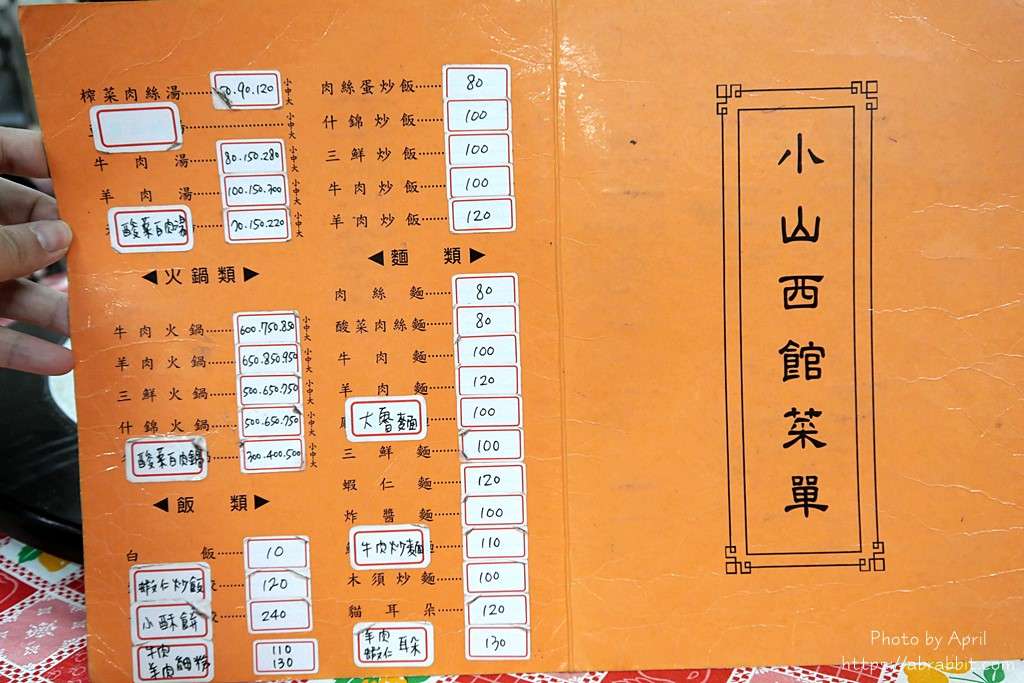 榨菜肉絲湯 70.90.120 小中大
湯 小中大
牛肉湯 80.150.280 小中大
羊肉湯 100.150.300 小中大
酸菜百肉湯 70.150.220 小中大
◀火鍋類▶
牛肉火鍋 600.750.850 小中大
羊肉火鍋 650.850.950 小中大
三鮮火鍋 500.650.750 小中大
什錦火鍋 500.650.750 小中大
酸菜百肉鍋 300.400.500 小中大
◀飯類▶
白飯 10
蝦仁炒飯 120
小酥餅 240
牛肉 110
羊肉 細粉 130
肉絲蛋炒飯 80
什錦炒飯 100
三鮮炒飯 100
牛肉炒飯 100
羊肉炒飯 120
◀麵類▶
肉絲麵 80
酸菜肉絲麵 80
牛肉麵 100
羊肉麵 120
大魯麵 100
三鮮麵 100
蝦仁麵 120
炸醬麵 100
牛肉炒麵 110
木須炒麵 100
貓耳朵 120
羊肉 蝦仁 耳朵 130
小山西館菜單
Photo by April
https://abrabbit.com